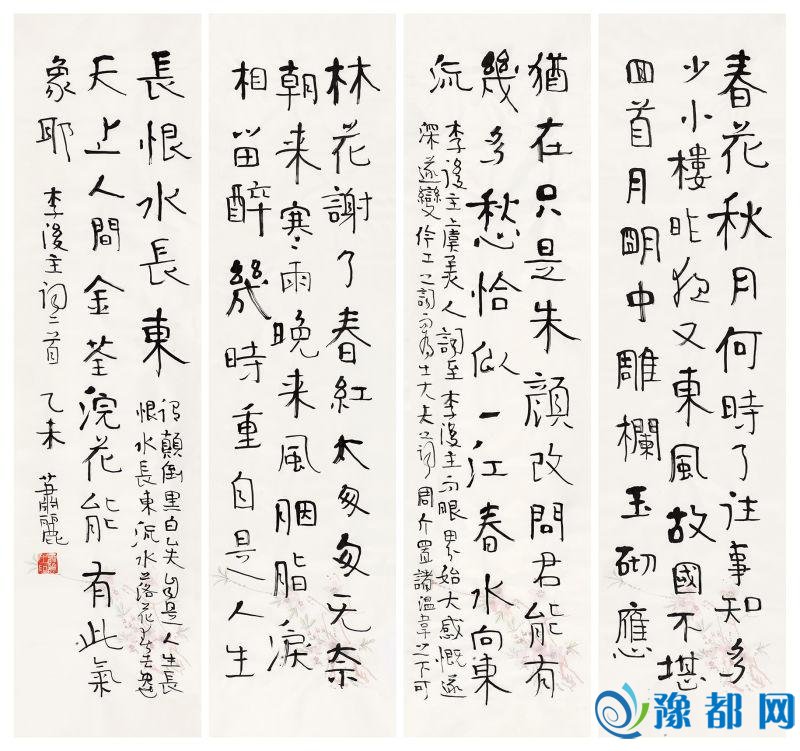 春花秋月何時了往事知多
少小樓昨夜又東風故國不堪
回首月明中雕欄玉砌應
猶在只是朱顏改問君能有
幾多愁恰似一江春水向東
流
李後主虞美人詞至李後主而眼界始大感慨遂
深遂變伶工之詞而為士大夫之詞周介置諸溫韋之下可
林花謝了春紅太匆匆无奈
朝来寒雨晚来風胭脂淚
相畱醉幾時重自是人生
長恨水長東
謂顛倒黑白矣自是人生長
恨水長東流水落花春去也
天上人間金荃浣花能有此氣
象耶
李後主詞二首 乙未 蕭麗
豫都网